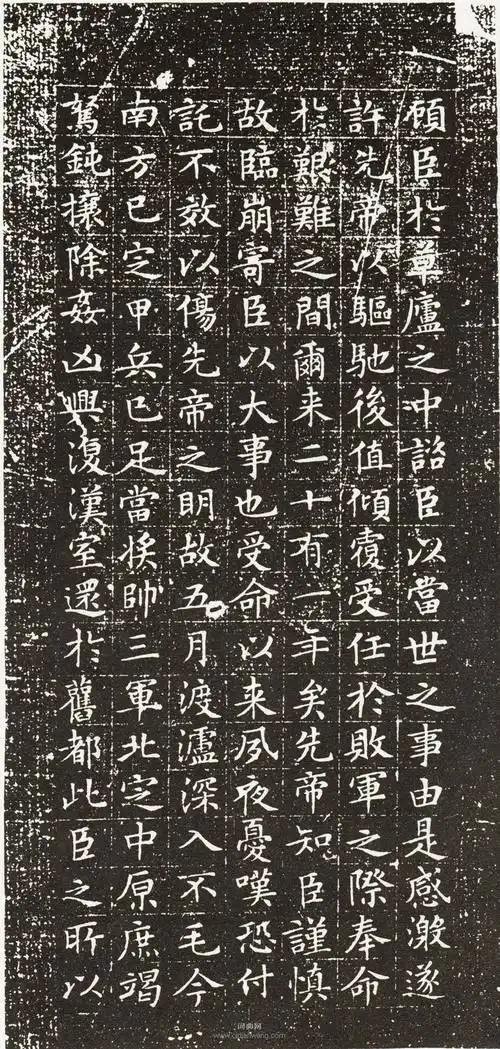 顧臣於草廬之中諮臣以當世之事由是感激遂
許先帝以驅馳後值傾覆受任於敗軍之際奉命
於艱難之間爾来二十有一年矣先帝知臣謹慎
故臨崩寄臣以大事也受命以来夙夜憂嘆恐付
託不效以傷先帝之明故五月渡瀘深入不毛今
南方已定甲兵已足當獎帥三軍北定中原庶竭
駑鈍攘除姦凶興復漢室還於舊都此臣之所以
词典网
www.cidianwang.com